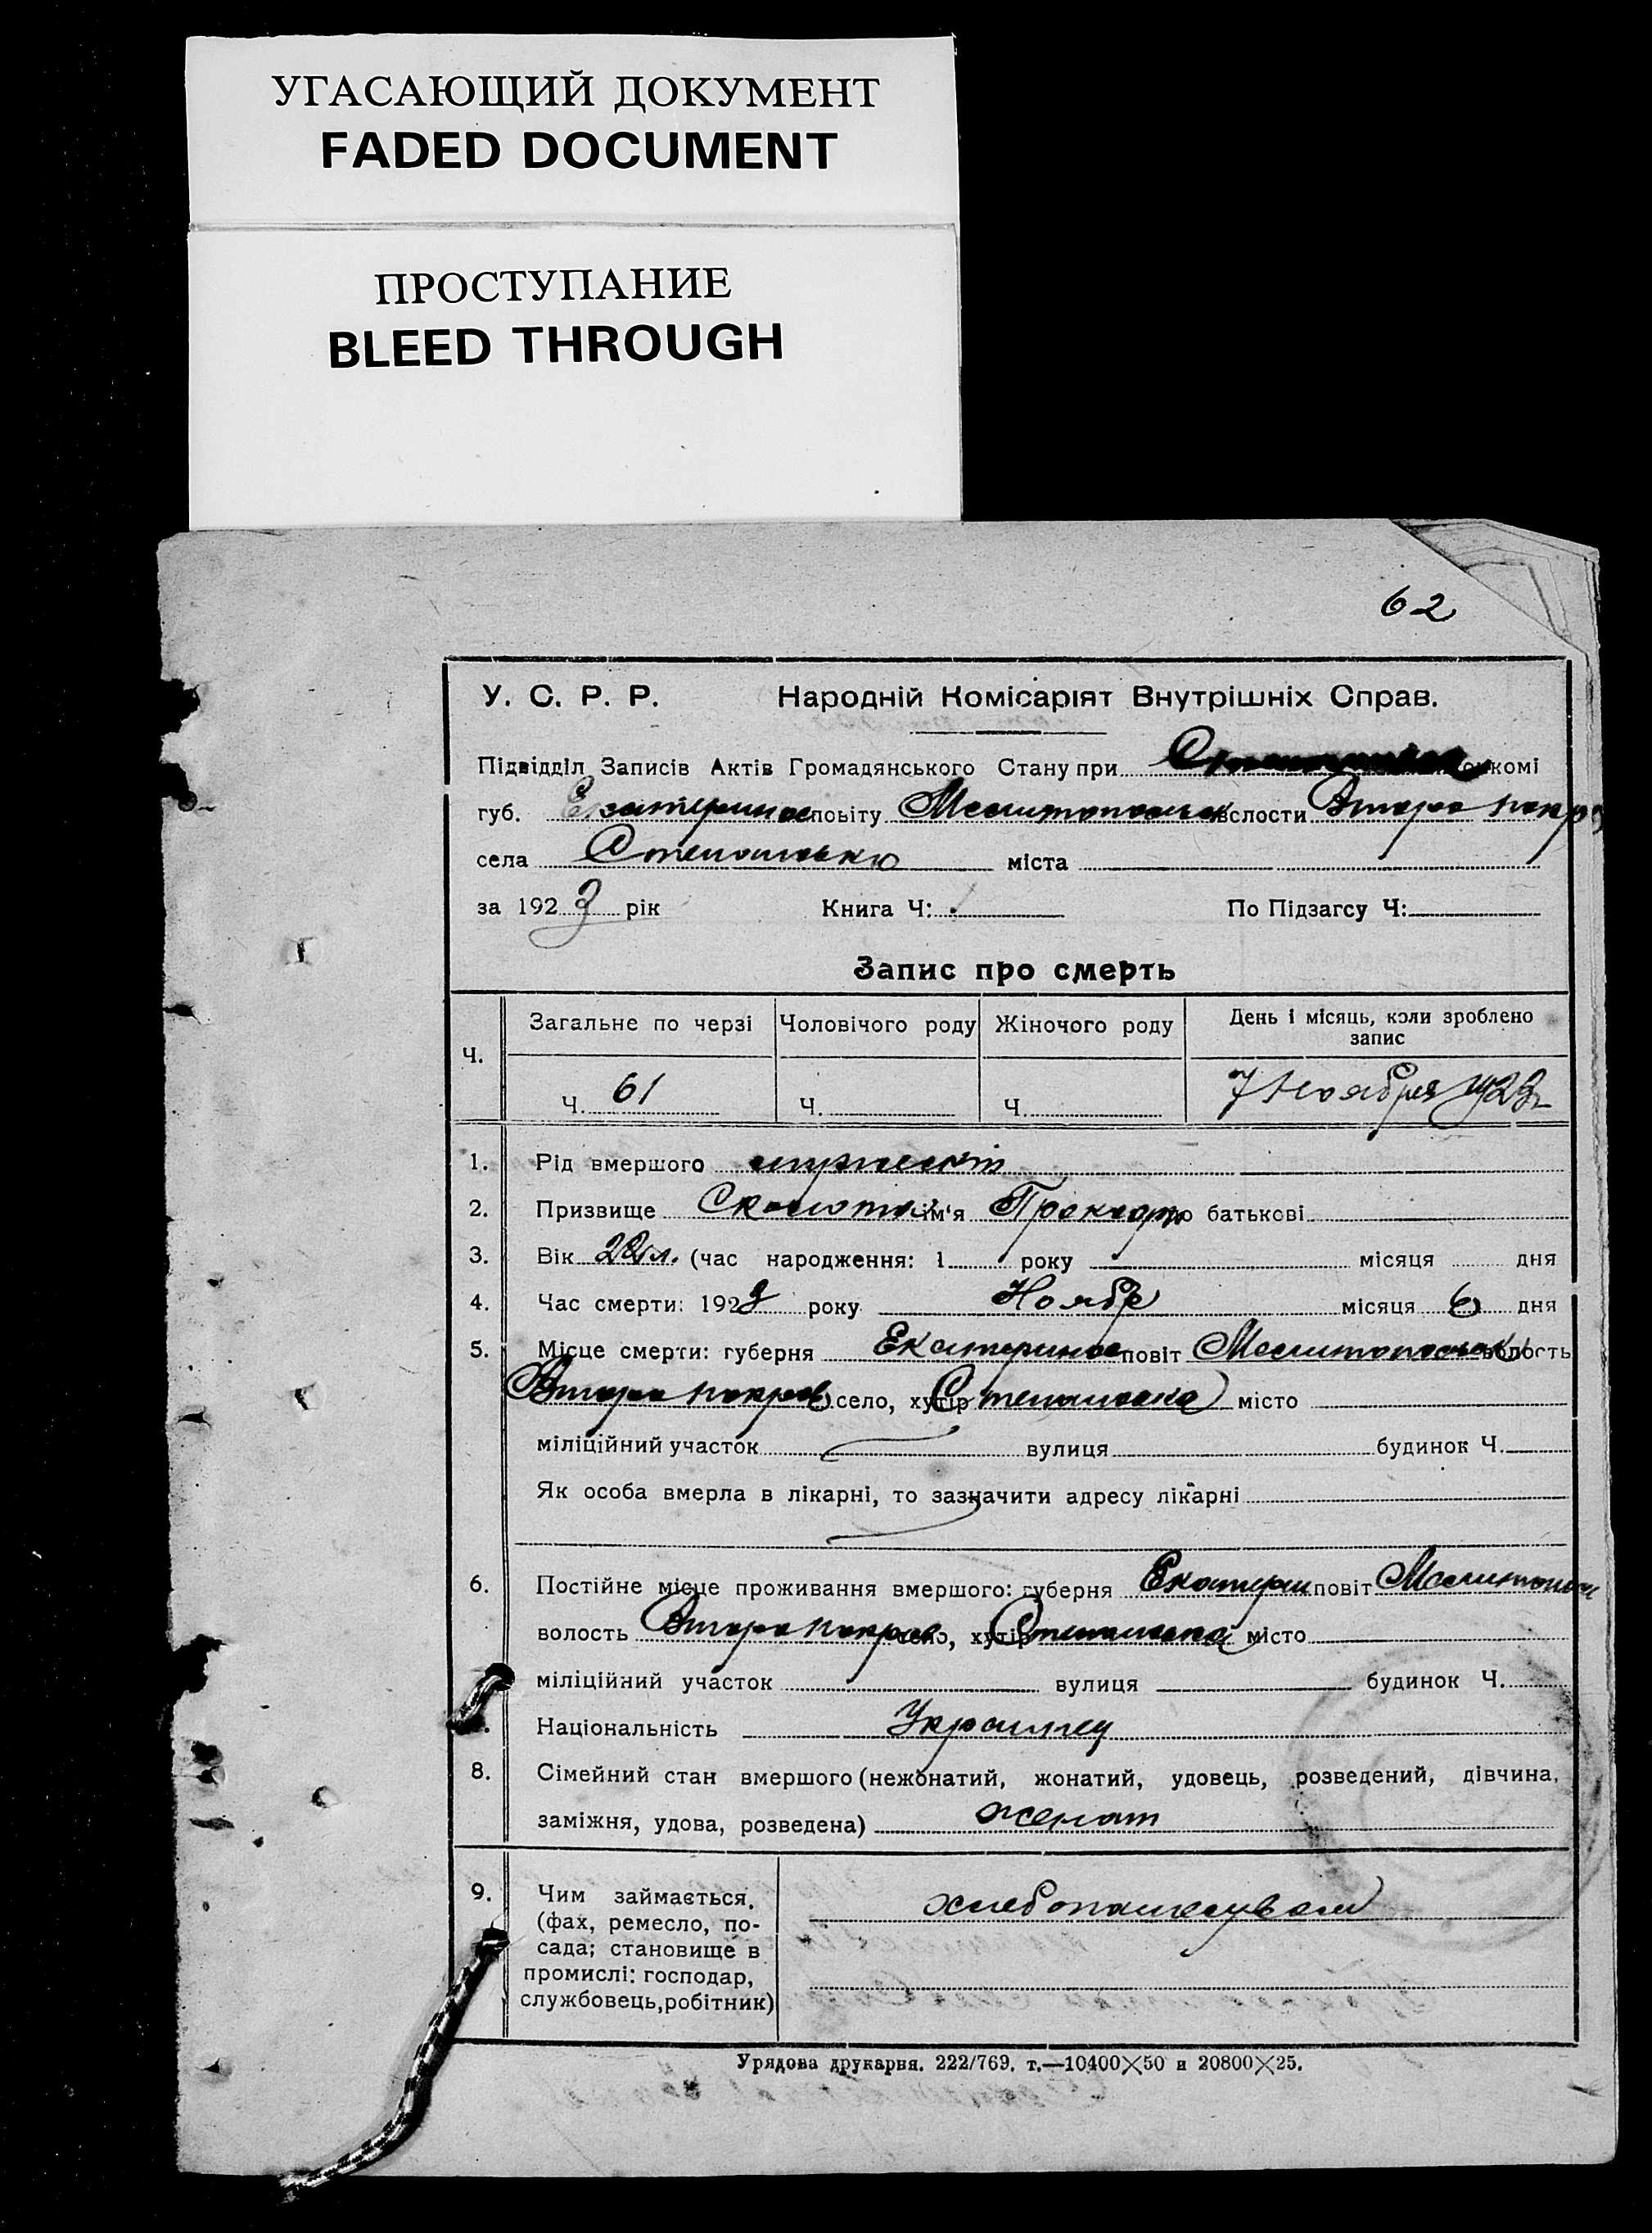 УГАСАЮЩИЙ ДОКУМЕНТ
FADED DOCUMENT
ПРОСТУПАНИЕ
BLEED THROUGH
62
У. С. Р. Р. Народній Комісаріят Внутрішніх Справ.
Підвідділ Записів Актів Громадянського Стану при
губ. Екатеринос повіту Мелитопольск волости Второ покро
села Степановки міста
за 1923 рік Книга Ч: По Підзагсу Ч:
Запис про смерть
Ч. Загальне по черзі Чоловічого роду Жіночого роду День і місяць, коли зроблено запис
Ч. 61 Ч. Ч. 7 Ноября 1923г
1. Рід вмершого мужеск
2. Призвище ім'я по батькові
3. Вік 22 л. (час народження: 1 року місяця дня
4. Час смерти: 1923 року Ноябр місяця 6 дня
5. Місце смерти: губерня Екатеринос повіт Мелитопольск волость
Второ покров село, хутір Степановка місто
міліційний участок вулиця будинок Ч.
Як особа вмерла в лікарні, то зазначити адресу лікарні
6. Постійне місце проживання вмершого: губерня Екатерин повіт Мелитопол
волость Второ покров село, хутір Степановка місто
міліційний участок вулиця будинок Ч.
Національність Украинец
8. Сімейний стан вмершого (нежонатий, жонатий, удовець, розведений, дівчина,
заміжня, удова, розведена) женат
9. Чим займається. хлебопашеувал
(фах, ремесло, по-
сада; становище в
промислі: господар,
службовець, робітник)
Урядова друкарня. 222/769. т.—10400×50 и 20800×25.